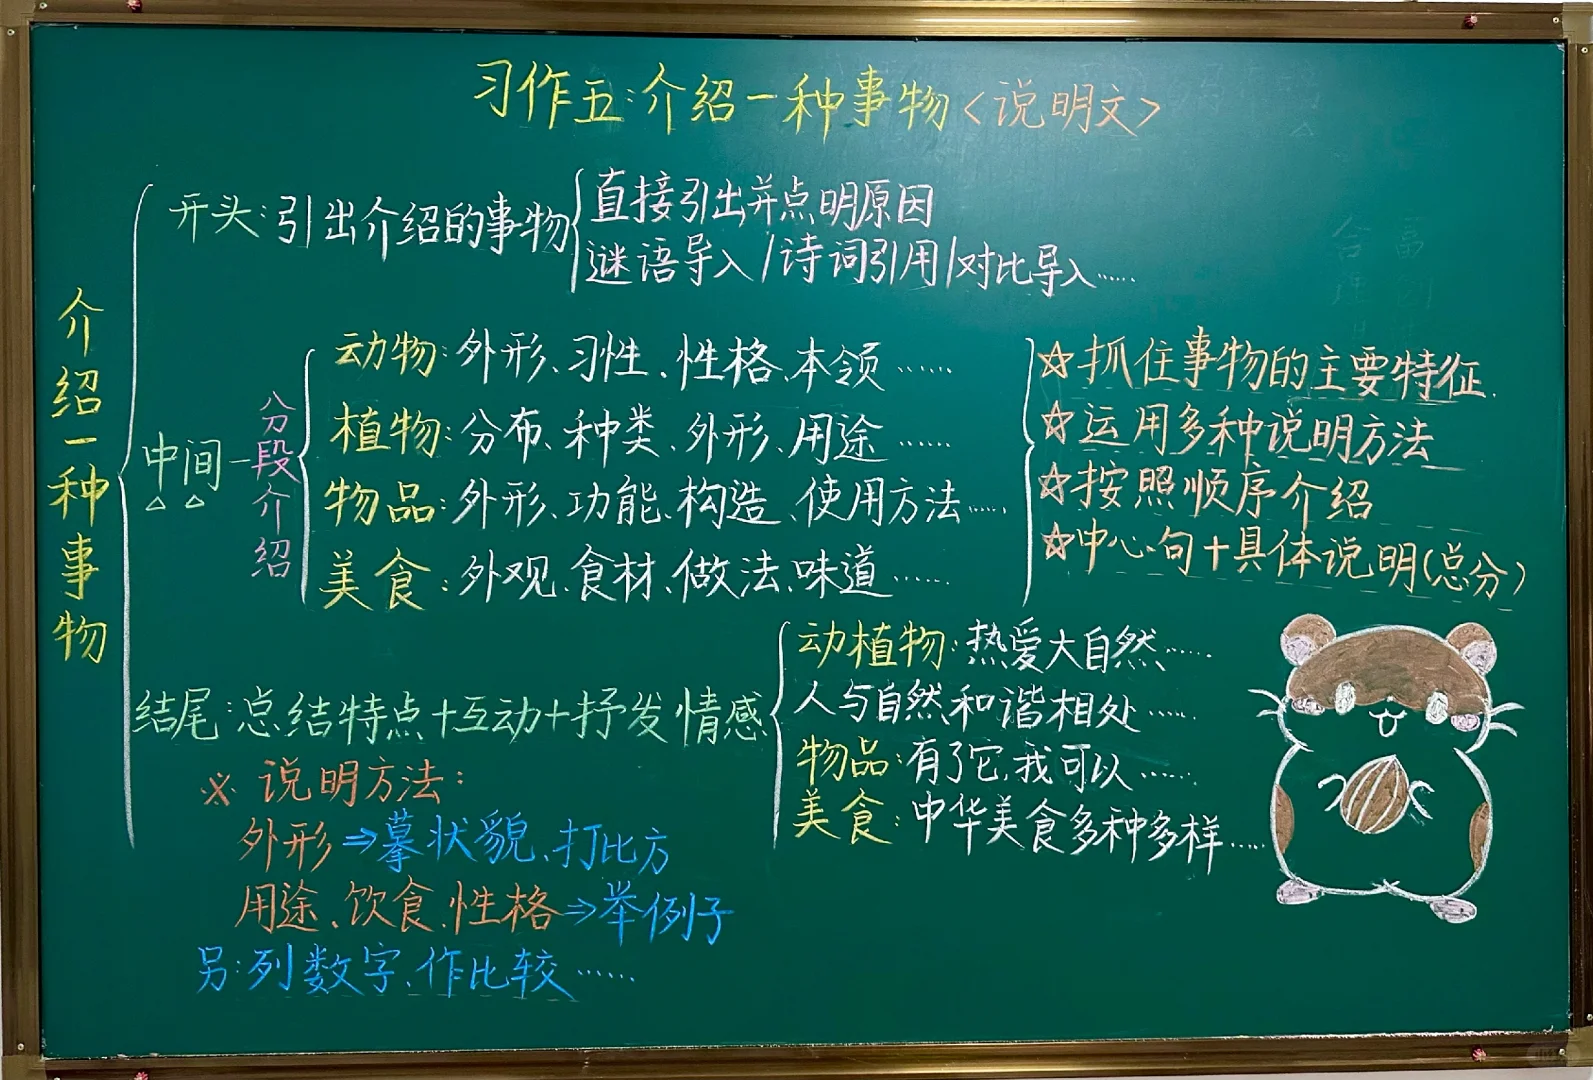 习作五:介绍一种事物<说明文>
介绍一种事物
开头:引出介绍的事物
直接引出并点明原因
谜语导入/诗词引用/对比导入……
中间
分段介绍
动物:外形、习性、性格、本领……
植物:分布、种类、外形、用途……
物品:外形、功能、构造、使用方法……
美食:外观、食材、做法、味道……
☆抓住事物的主要特征.
☆运用多种说明方法
☆按照顺序介绍
☆中心句+具体说明(总分)
结尾:总结特点+互动+抒发情感
动植物:热爱大自然……
人与自然和谐相处……
物品:有了它,我可以……
美食:中华美食多种多样……
※说明方法:
外形⇒摹状貌、打比方
用途、饮食、性格⇒举例子
另:列数字、作比较……